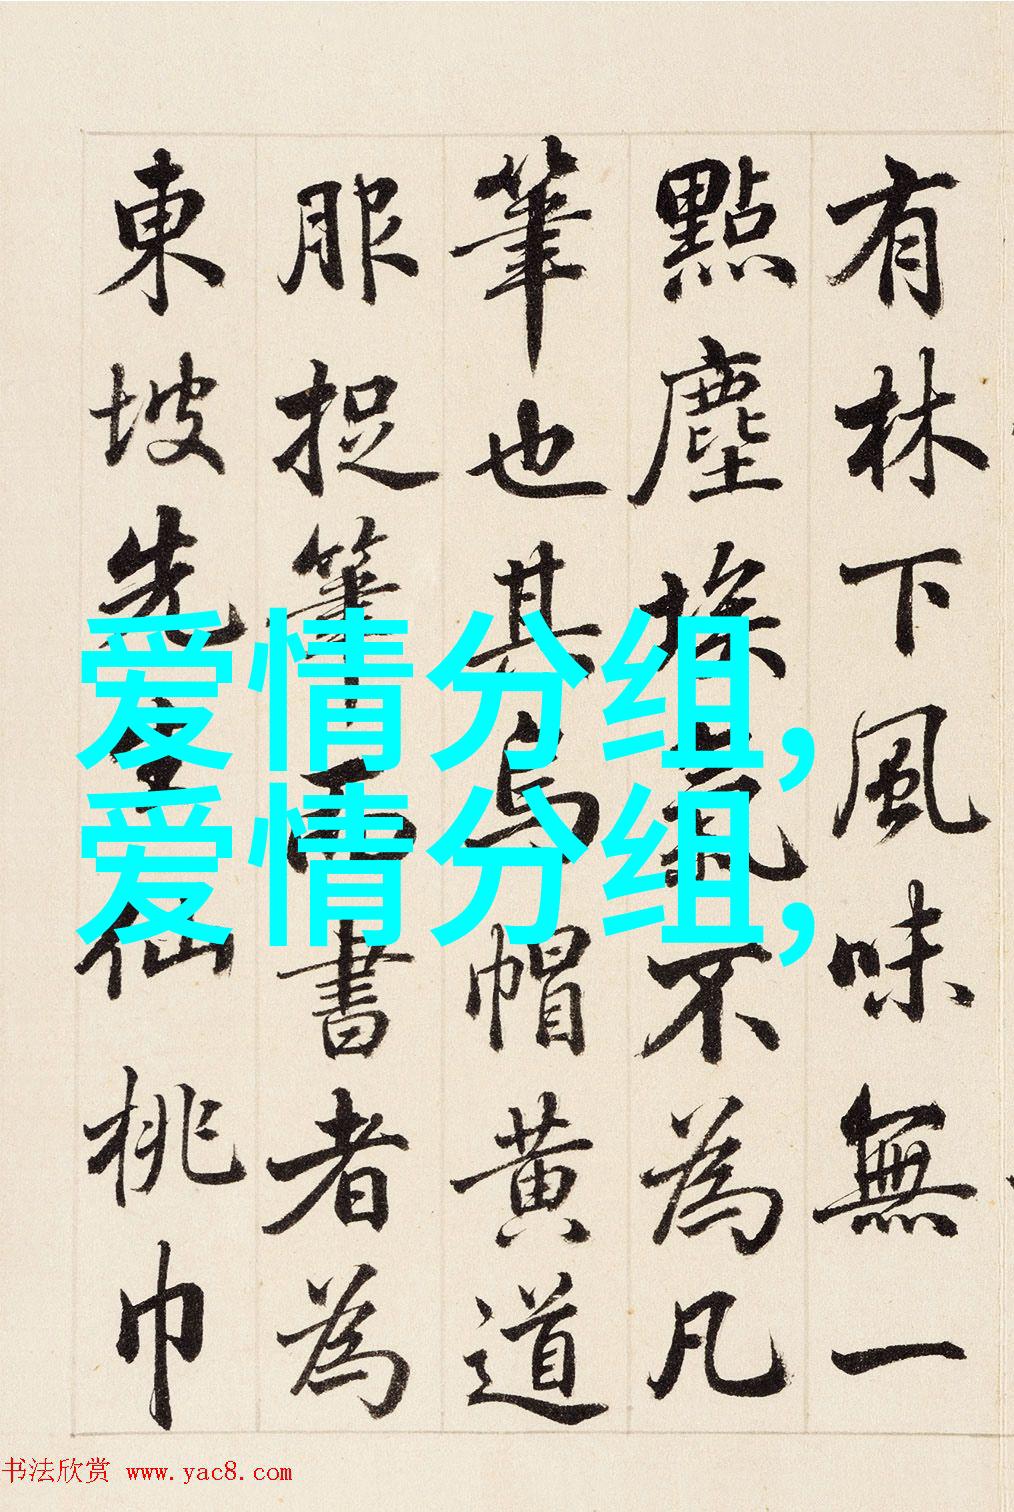 有林下風味無一
點塵埃氣不為凡
筆也其烏帽黃道
服捉筆而書者為
東坡先生仙桃巾
爱情分组,
爱情分组,
书法欣赏 www.yac8.com